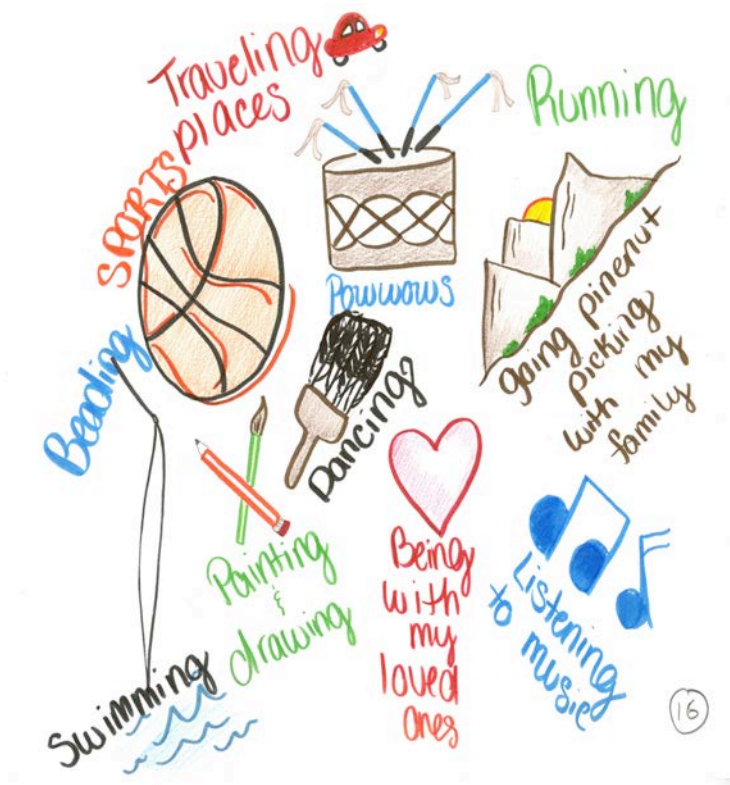 Traveling
places
Running
SPORTS
Powwows
going pinenut
picking
with my
family
Beading
Dancing
Painting
&
drawing
Being
with
my
loved
ones
Listening
to music
Swimming
16